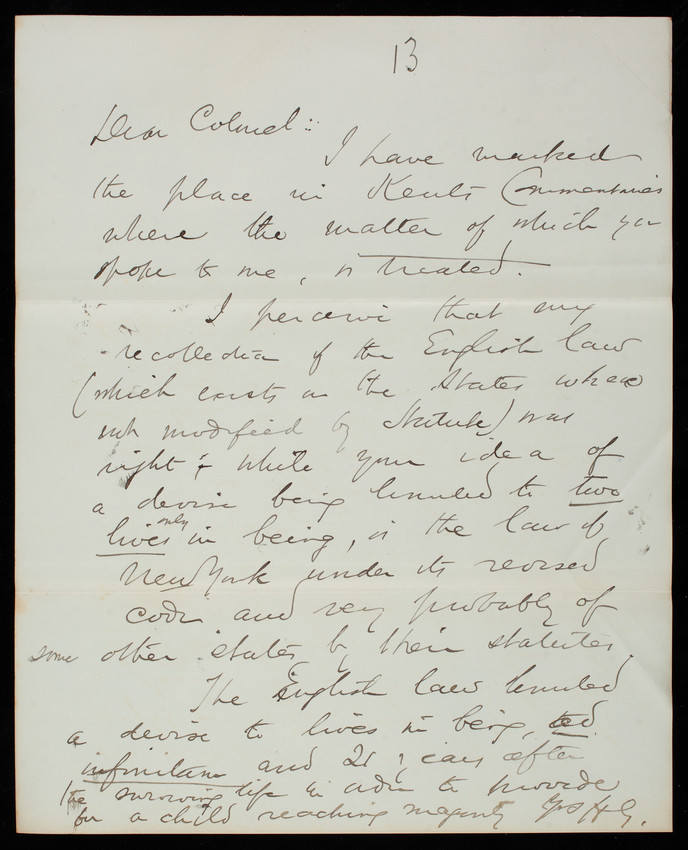 13
Dear Colonel:
I have marked
the place in Kents Commentaries
where the matter of which you
spoke to me, is treated.
I perceive that my
recollection of the English law
(which exists in the States where
not modified by Statute) was
right & while your idea of
a devise being limited to two
lives only in being, is the law of
New York under its revised
code and very probably of
some other states by their statutes.
The English law limited
a devise to lives in being, ad
infinitum and 21 years after
the surviving life in order to provide
for a child reaching majority Yrs H G.